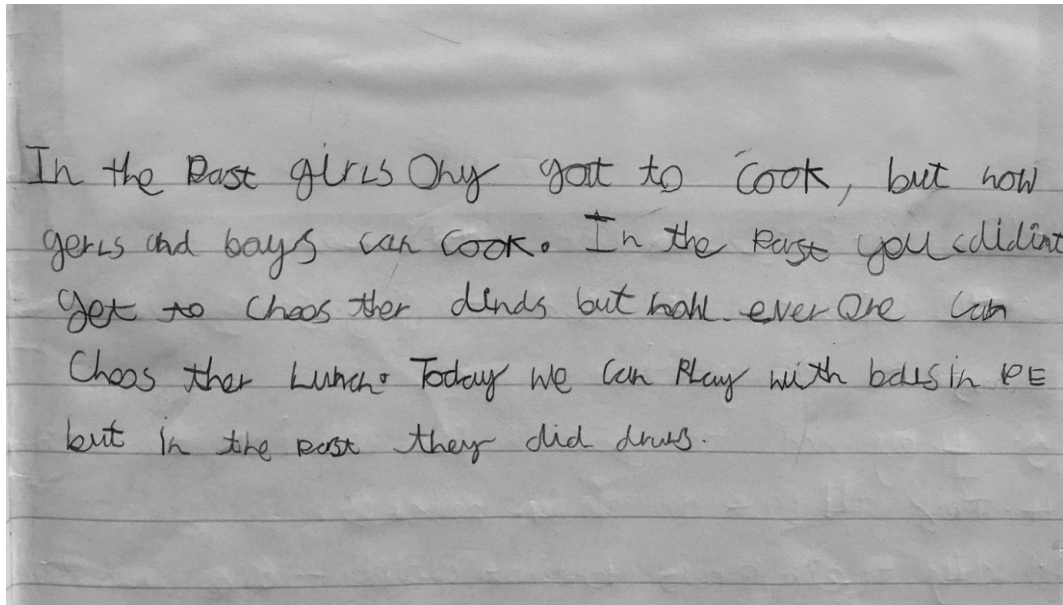 In the Past girls Ony gott to cook, but now
gerls and boys can cook. In the Past you didint
get to Choos ther dinds but now ever One can
Choos ther Lunch. Today we can Play with balls in PE
but in the past they did druls.